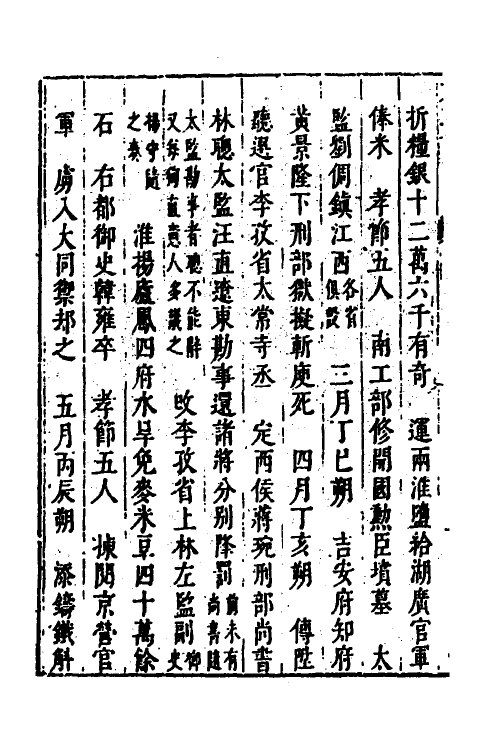 折糧銀十二萬六千有奇　運兩淮鹽給湖廣官軍
俸米　孝節五人　南工部修開國勲臣墳墓　太
監劉倜鎮江西各省俱設　三月丁巳朔　吉安府知府
黄景隆下刑部獄擬斬庾死　四月丁亥朔　傳陞
聽選官李孜省太常寺丞　定西侯蔣琬刑部尚書
林聰太監汪直遼東勘事還諸將分别降罰前未有尚書隨
太監勘事者聰不能辭又每狥直意人多議之　改李孜省上林左監副御史
楊守隨之奏　淮揚廬鳳四府水旱免麥米豆四十萬餘
石　右都御史韓雍卒　孝節五人　揀閱京營官
軍　虜入大同禦却之　五月丙辰朔　添鑄鐵斛